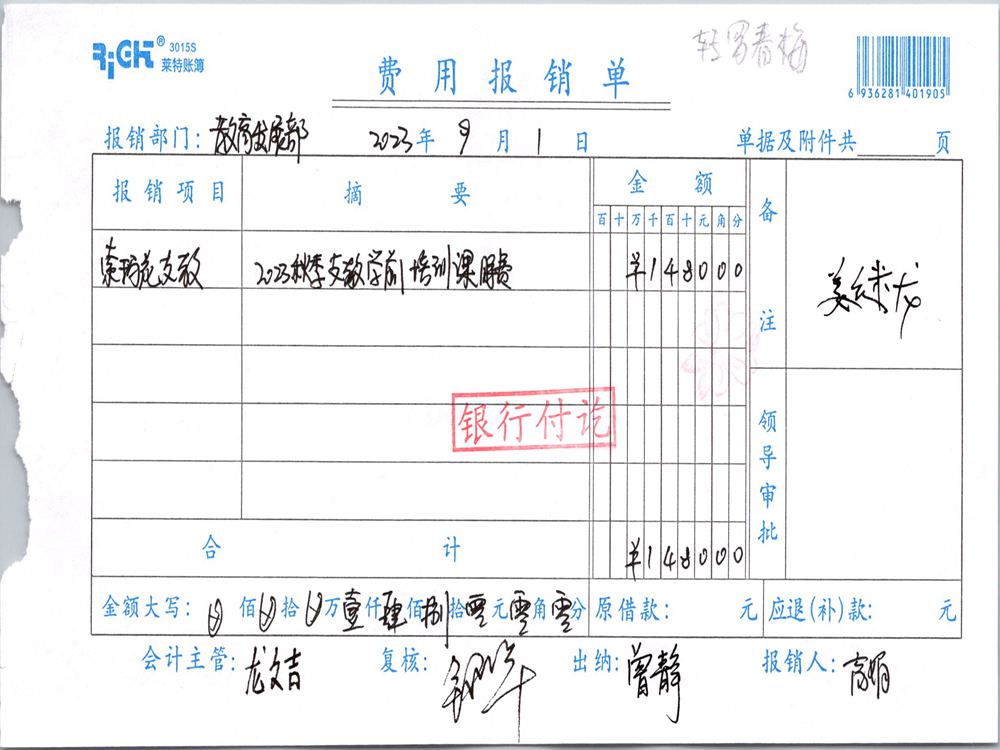 RiGHT® 3015S
莱特账簿
转罗春梅
费用报销单
6 936281 401905
报销部门：教育发展部 2023年9月1日 单据及附件共 页
报销项目 摘要 金额 备注
百十万千百十元角分
支教 2023秋季支教学前培训课时费 ¥148000
姜继龙
银行付讫
领导审批
合计 ¥148000
金额大写： 佰 拾 万壹仟肆佰捌拾零元零角零分 原借款： 元 应退(补)款： 元
会计主管：龙文吉 复核： 出纳：曾静 报销人：高娟